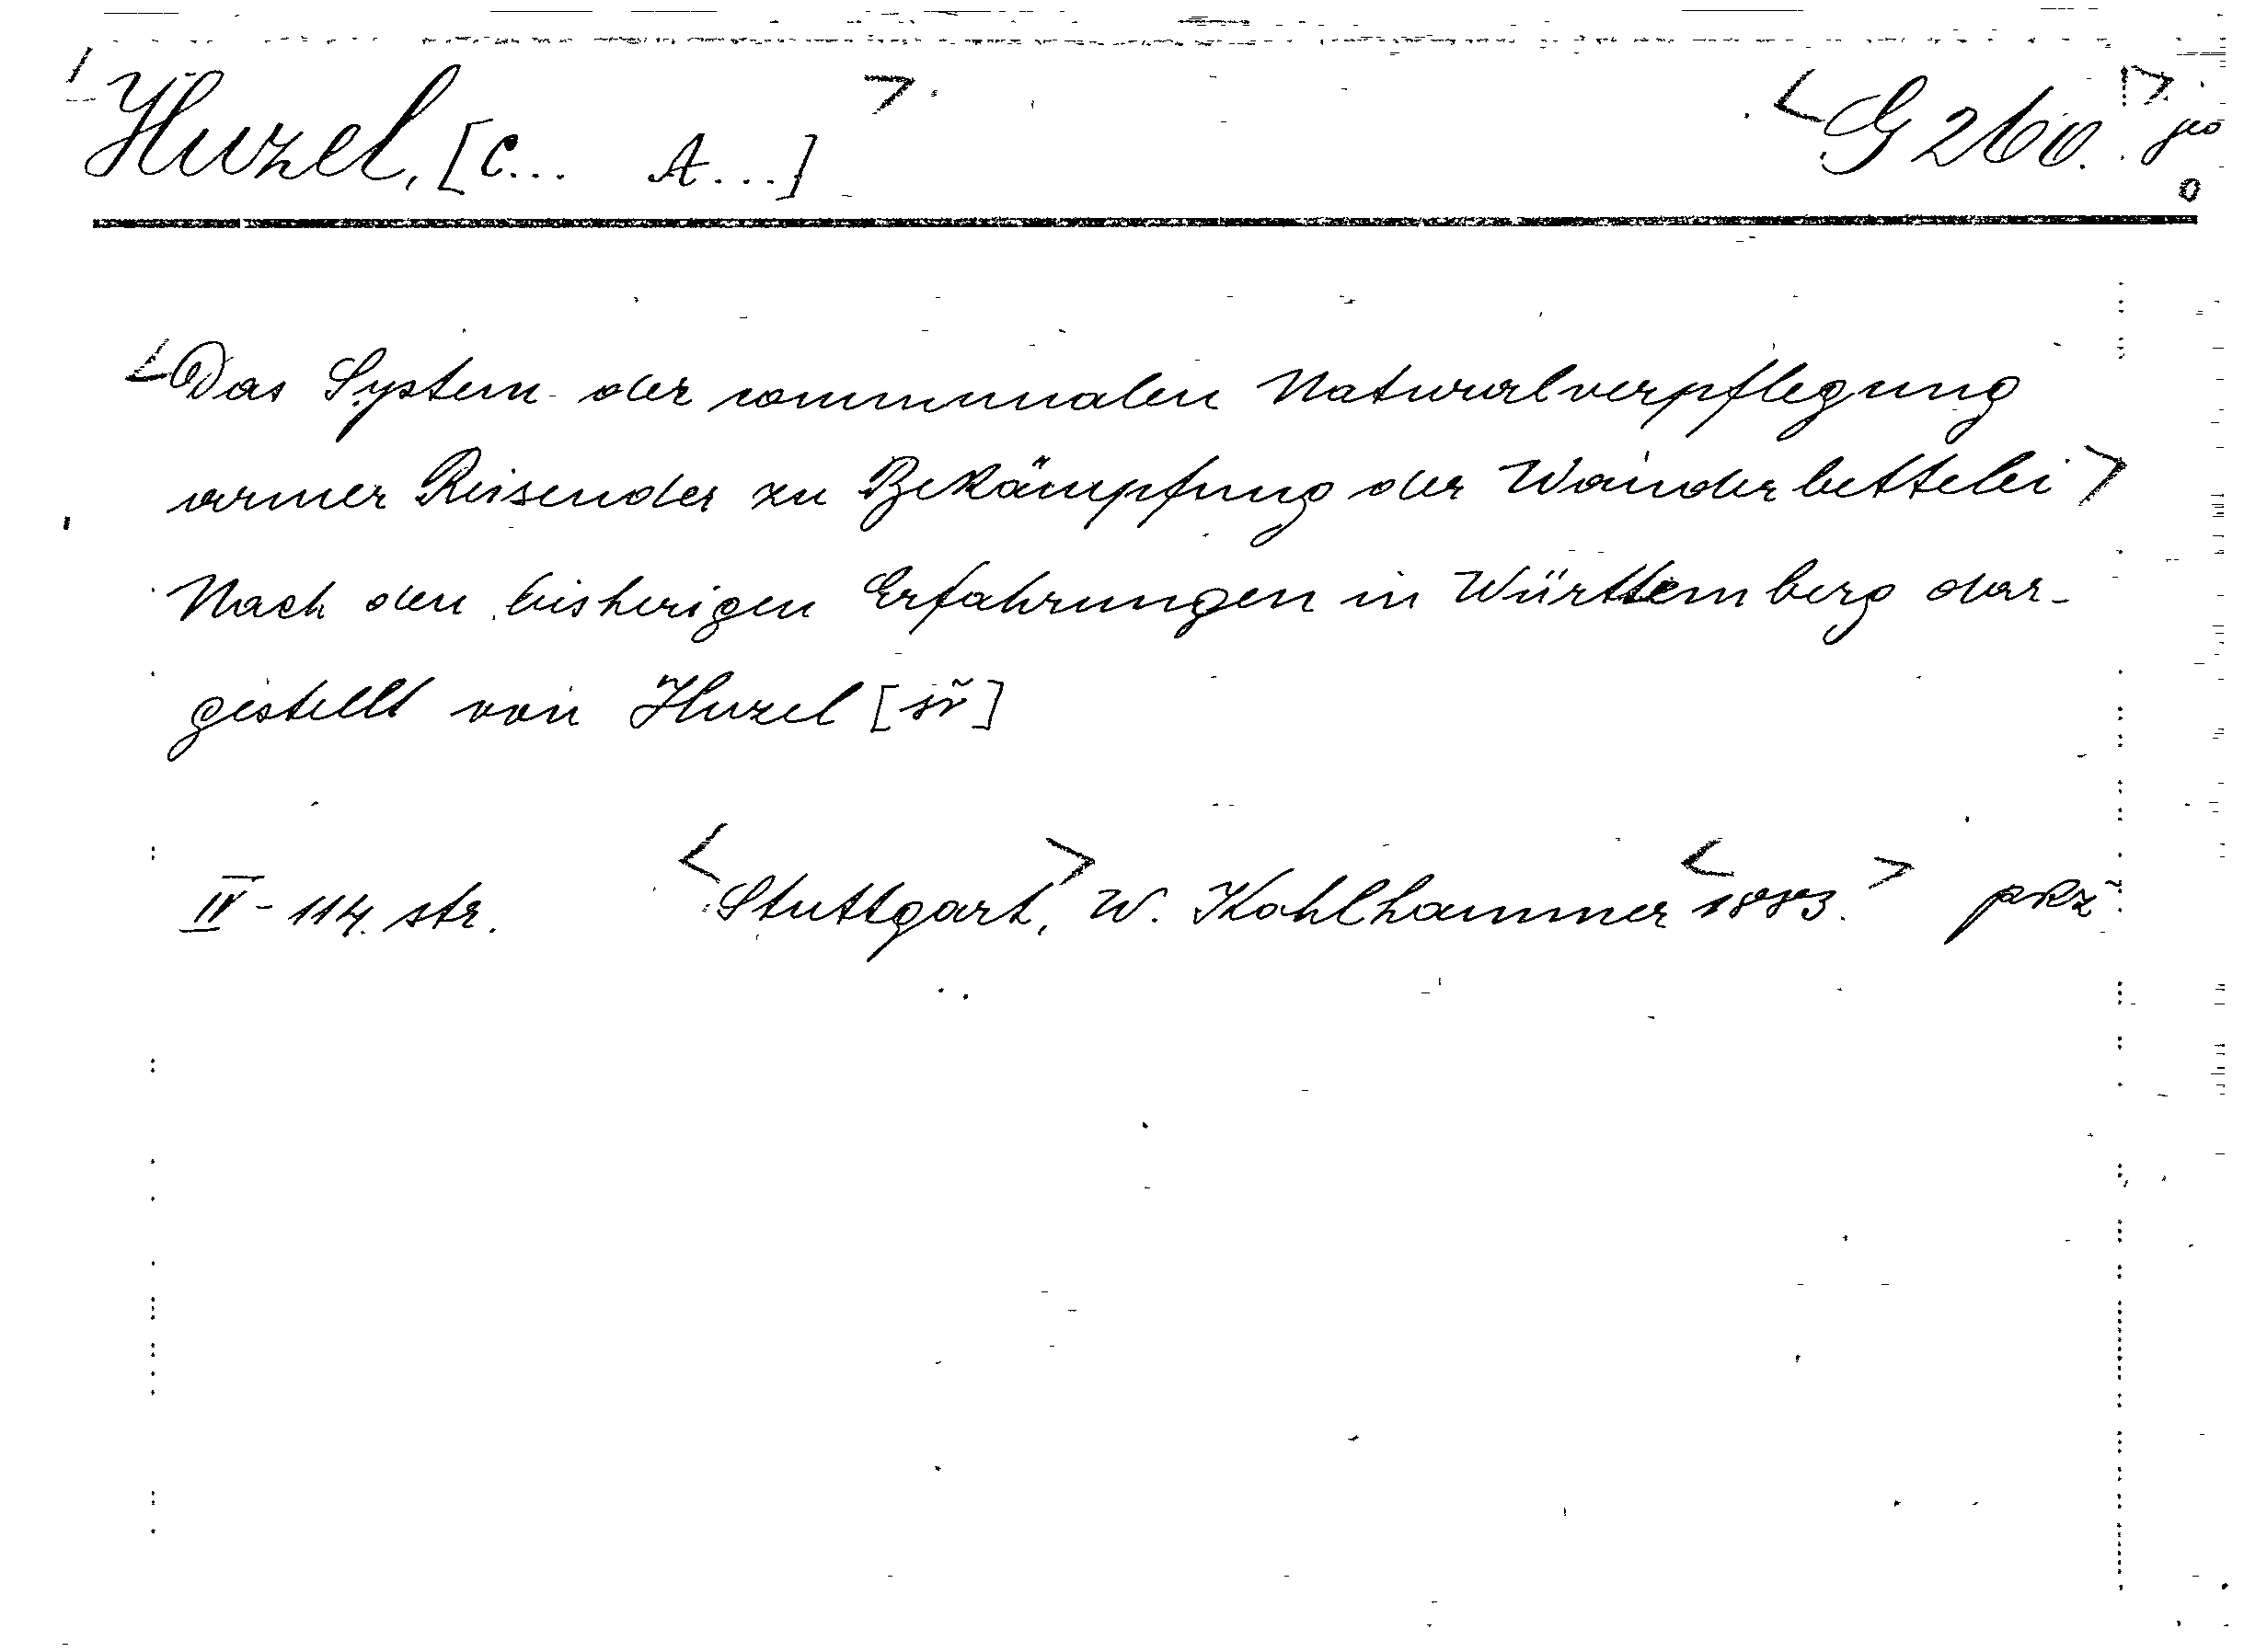 Huzel, [C... A...] G 260.
Das System der communalen Naturalverpflegung
armer Reisender zu Bekämpfung der Wanderbettelei
Nach den bisherigen Erfahrungen in Württemberg dar-
gestellt von Huzel [sř]
IV - 114. str. Stuttgart, W. Kohlhammer 1883.